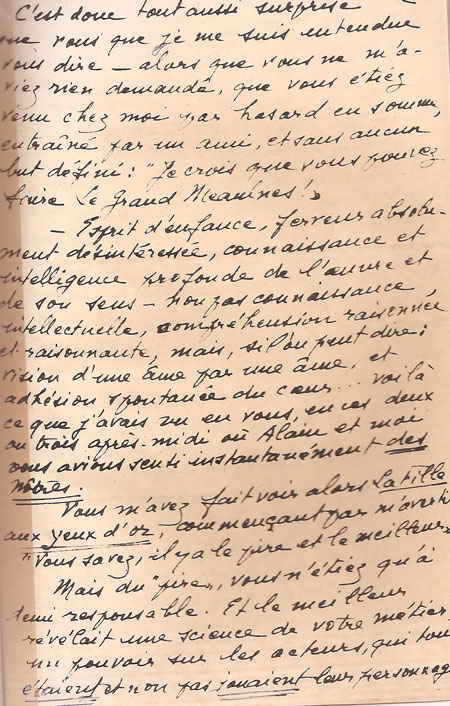 C'est donc tout aussi surprise
que vous que je me suis entendue
vous dire — alors que vous ne m'a-
viez rien demandé, que vous étiez
venu chez moi par hasard en somme,
entraîné par un ami, et sans aucun
but défini : "Je crois que vous pouvez
faire Le Grand Meaulnes !"
— Esprit d'enfance, ferveur absolu-
ment désintéressée, connaissance et
intelligence profonde de l'œuvre et
de son sens — non pas connaissance
intellectuelle, compréhension raisonnée
et raisonnante, mais, si l'on peut dire :
vision d'une âme par une âme, et
adhésion spontanée du cœur... voilà
ce que j'avais vu en vous, en ces deux
ou trois après-midi où Alain et moi
vous avions senti instantanément des
nôtres.
Vous m'avez fait voir alors La fille
aux yeux d'or, commençant par m'avertir
"Vous savez, il y a le pire et le meilleur"
Mais du "pire", vous n'étiez qu'à
demi responsable. Et le meilleur
révélait une science de votre métier,
un pouvoir sur les acteurs, qui tous
étaient et non pas jouaient leur personnage